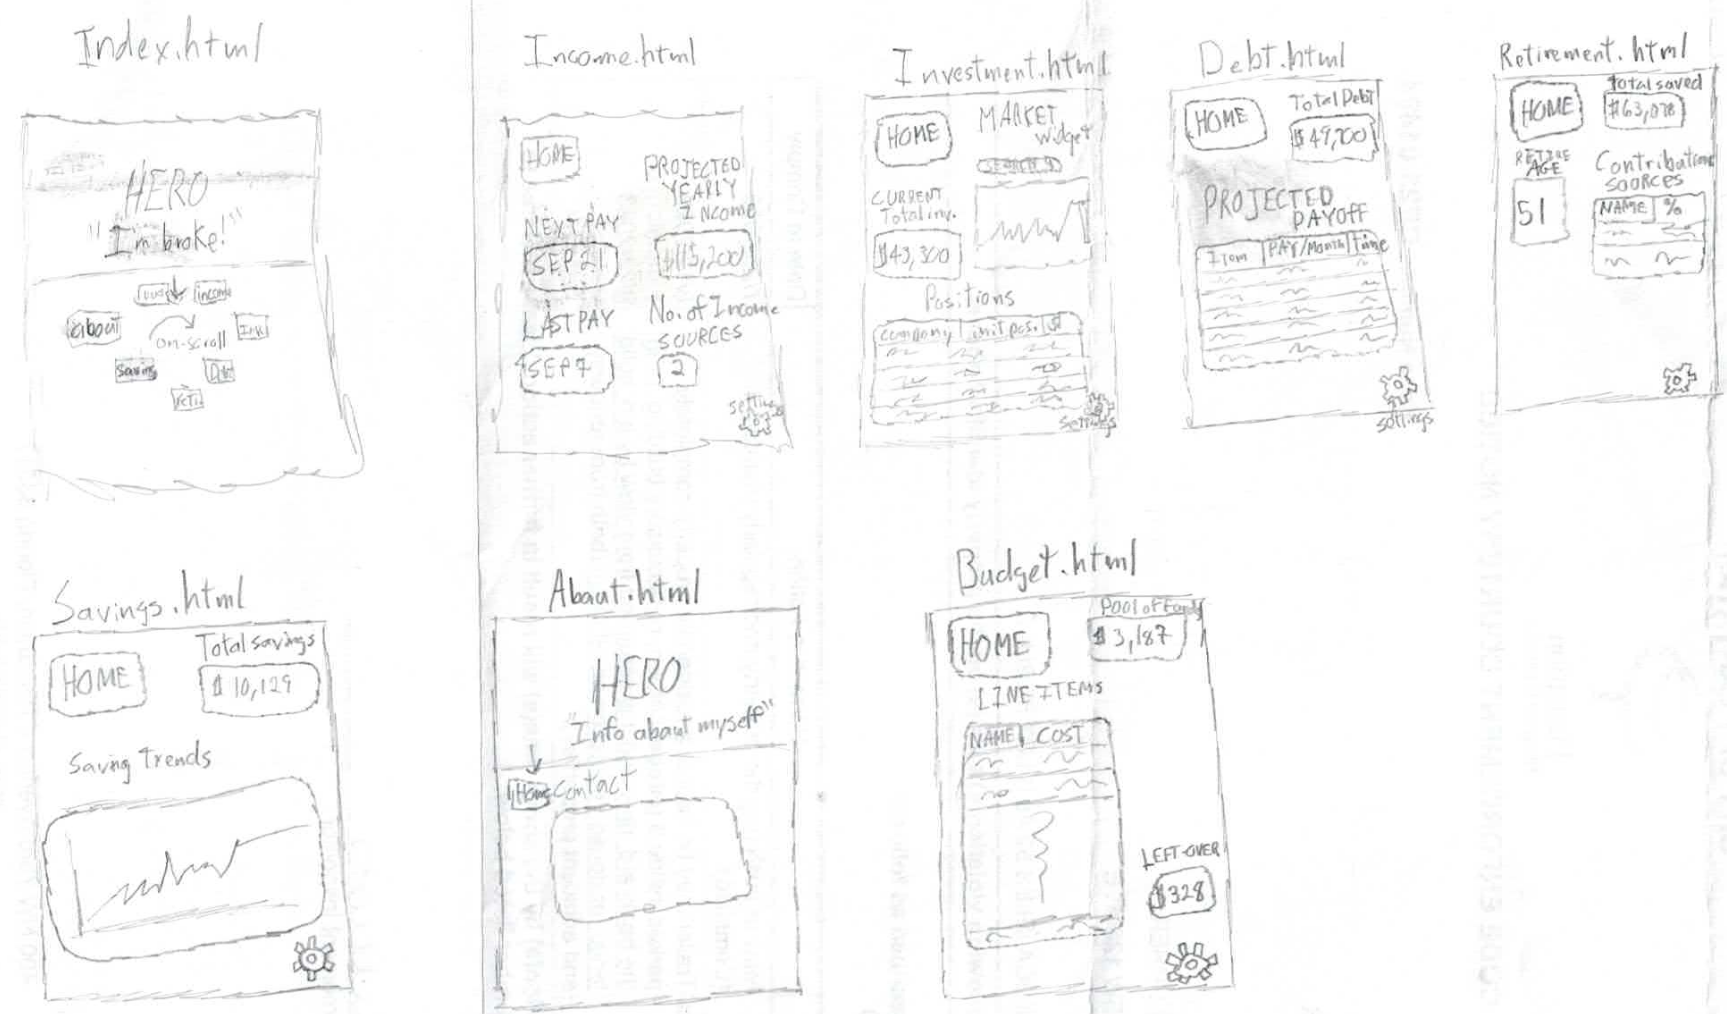 Index.html
HERO
"I'm broke!"
income
about
on-scroll
Inv.
Saving
Debt
reti
Income.html
HOME
PROJECTED
YEARLY
INcome
$115,200
NEXT PAY
SEP 21
LAST PAY
SEP 7
No. of Income
SOURCES
2
settings
Investment.html
HOME
MARKET
widget
SEARCH
CURRENT
Total inv.
$43,300
Positions
company init pos. $
settings
Debt.html
HOME
Total Debt
$49,700
PROJECTED
PAYOFF
Item PAY/Month time
settings
Retirement.html
HOME
Total saved
$63,078
RETIRE
AGE
51
Contributions
SOURCES
NAME %
Savings.html
HOME
Total savings
$10,129
Saving Trends
About.html
HERO
"Info about myself"
Home
Contact
Budget.html
HOME
Pool of Funds
$3,187
LINE ITEMS
NAME COST
LEFT-OVER
$328